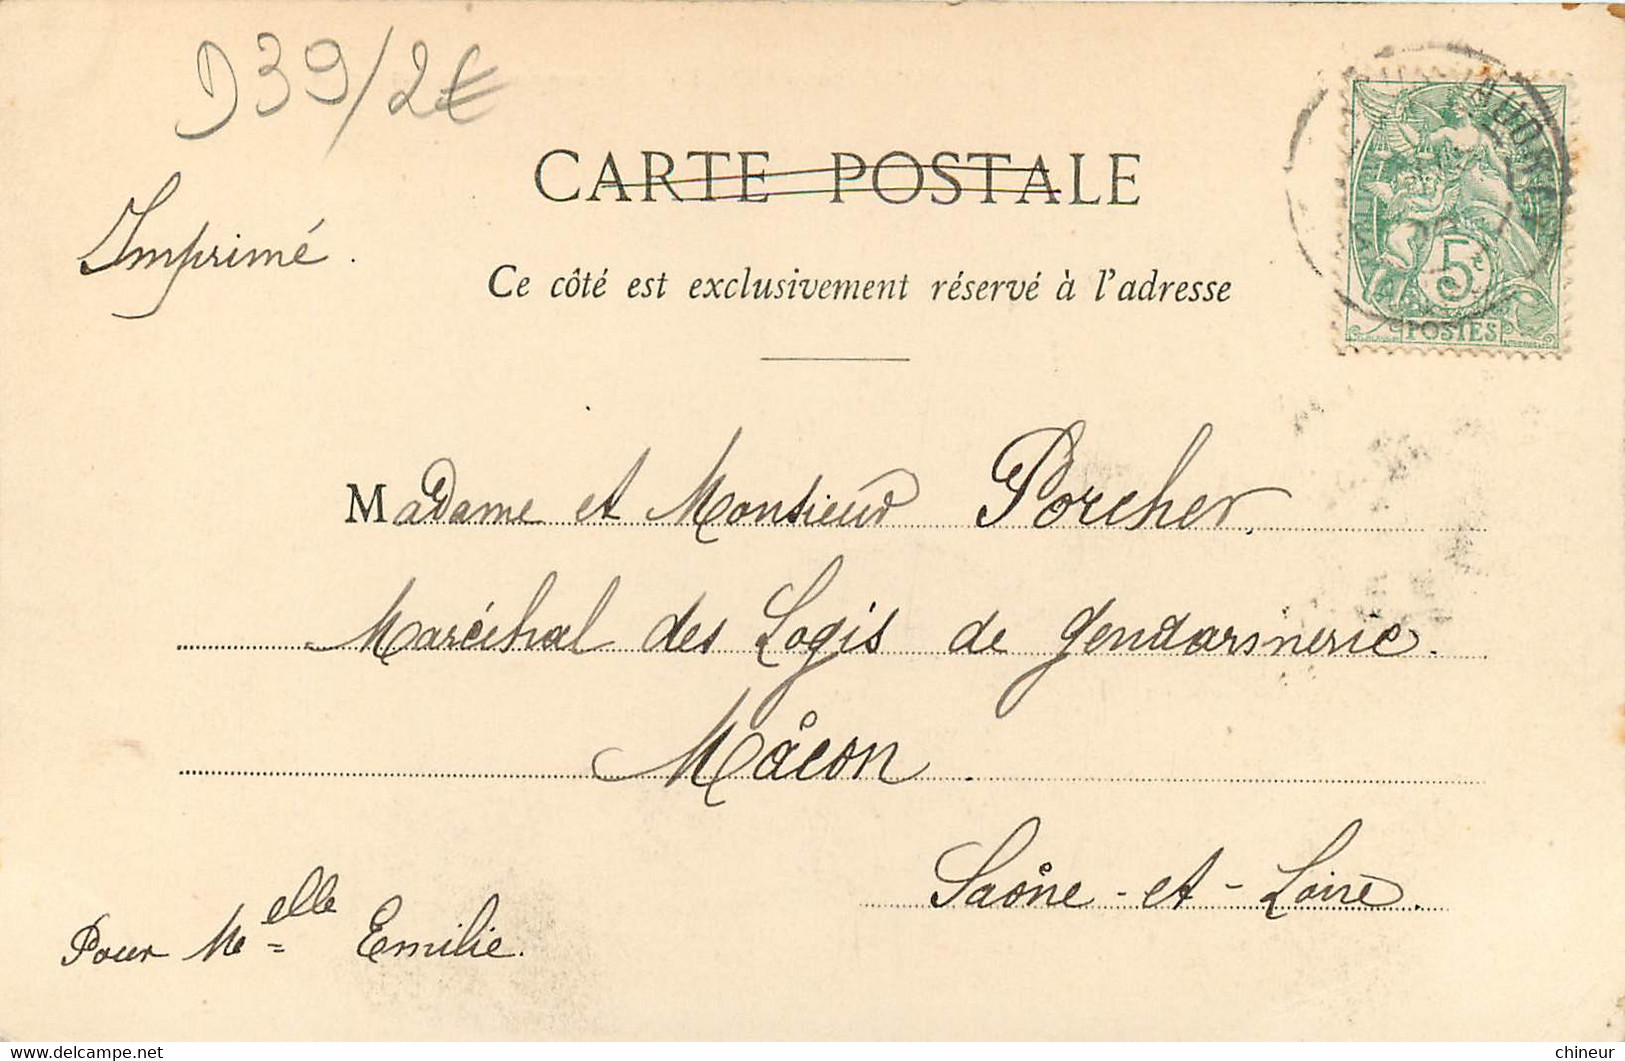 D39/2€
CARTE POSTALE
Imprimé.
Ce côté est exclusivement réservé à l'adresse
5c
POSTES
Madame et Monsieur Porcher,
Maréchal des Logis de Gendarmerie.
Mâcon.
Saône-et-Loire.
Pour Melle Emilie.
www.delcampe.net
chineur